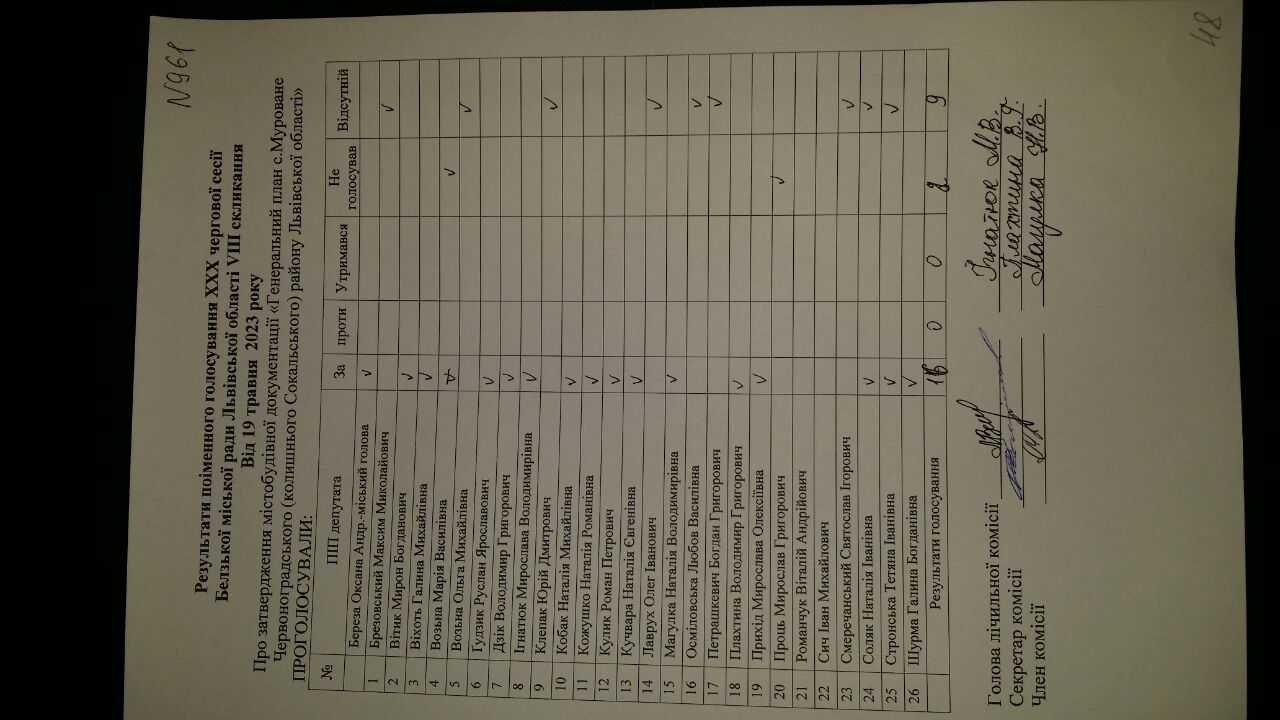 N961
48
Результати поіменного голосування XXX чергової сесії
Белзької міської ради Львівської області VIII скликання
Від 19 травня 2023 року
Про затвердження містобудівної документації «Генеральний план с.Муроване
Червоноградського (колишнього Сокальського) району Львівської області»
ПРОГОЛОСУВАЛИ:
№ ПІП депутата За проти Утримався Не голосував Відсутній
Береза Оксана Андр.-міський голова
1 Бреховський Максим Миколайович
2 Вітик Мирон Богданович
3 Віхоть Галина Михайлівна
4 Возьна Марія Василівна
5 Возьна Ольга Михайлівна
6 Гудзик Руслан Ярославович
7 Дзік Володимир Григорович
8 Ігнатюк Мирослава Володимирівна
9 Клепак Юрій Дмитрович
10 Кобак Наталія Михайлівна
11 Кожушко Наталія Романівна
12 Кулик Роман Петрович
13 Кучвара Наталія Євгенівна
14 Лаврух Олег Іванович
15 Магулка Наталія Володимирівна
16 Осміловська Любов Василівна
17 Петрашкевич Богдан Григорович
18 Плахтина Володимир Григорович
19 Прихід Мирослава Олексіївна
20 Проць Мирослав Григорович
21 Романчук Віталій Андрійович
22 Сич Іван Михайлович
23 Смеречанський Святослав Ігорович
24 Соляк Наталія Іванівна
25 Стронська Тетяна Іванівна
26 Шурма Галина Богданівна
Результати голосування 16 0 0 2 9
Голова лічильної комісії Ігнатюк М.В.
Секретар комісії Плахтина В.Г.
Член комісії Магулка Н.В.